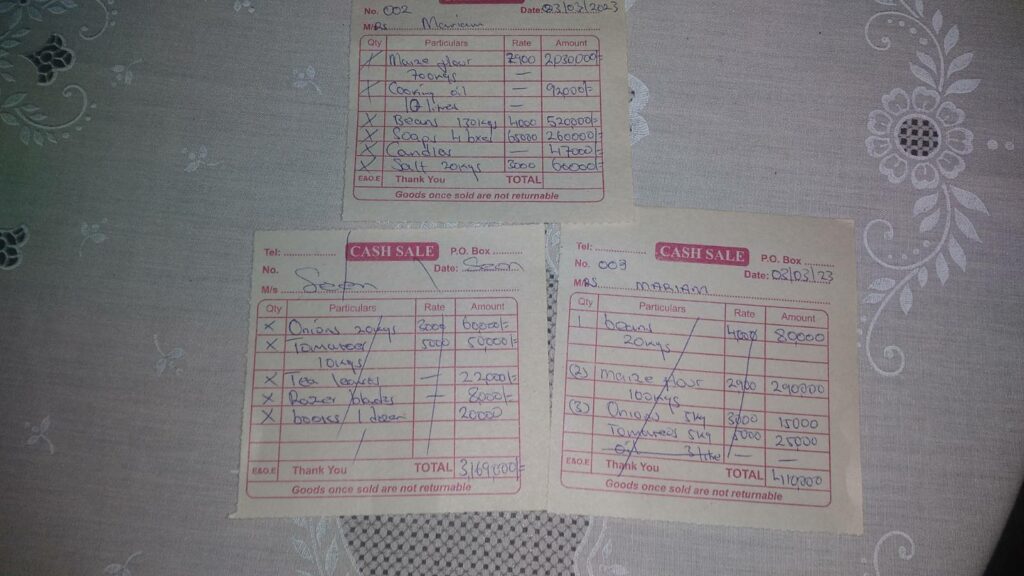 No. 002 Date: 03/03/2023
M/RS Mariam
Qty Particulars Rate Amount
X Maize flour 2900 2030000/=
700kgs —
X Cooking oil — 92000/=
10 litres —
X Beans 130kgs 4000 520000/=
X Soaps 4 boxes 65000 260000/=
X Candles — 47000/=
X Salt 20kgs 3000 60000/=
E&O.E Thank You TOTAL
Goods once sold are not returnable
Tel: CASH SALE P.O. Box
No. Date: Seen
M/s Seen
Qty Particulars Rate Amount
X Onions 20kgs 3000 60000/=
X Tomatoes 5000 50,000/=
10kgs
X Tea leaves — 22000/=
X Rozer blades — 8000/=
X books 1 dozen 20000
E&O.E Thank You TOTAL 3,169,000/=
Goods once sold are not returnable
Tel: CASH SALE P.O. Box
No. 003 Date: 03/03/23
M/RS. MARIAM
Qty Particulars Rate Amount
1 beans 4000 80000
20kgs
(2) Maize flour 2900 290000
100kgs
(3) Onions 5kg 3000 15000
Tomatoes 5kg 5000 25000
oil 3 litre — —
E&O.E Thank You TOTAL 410,000
Goods once sold are not returnable